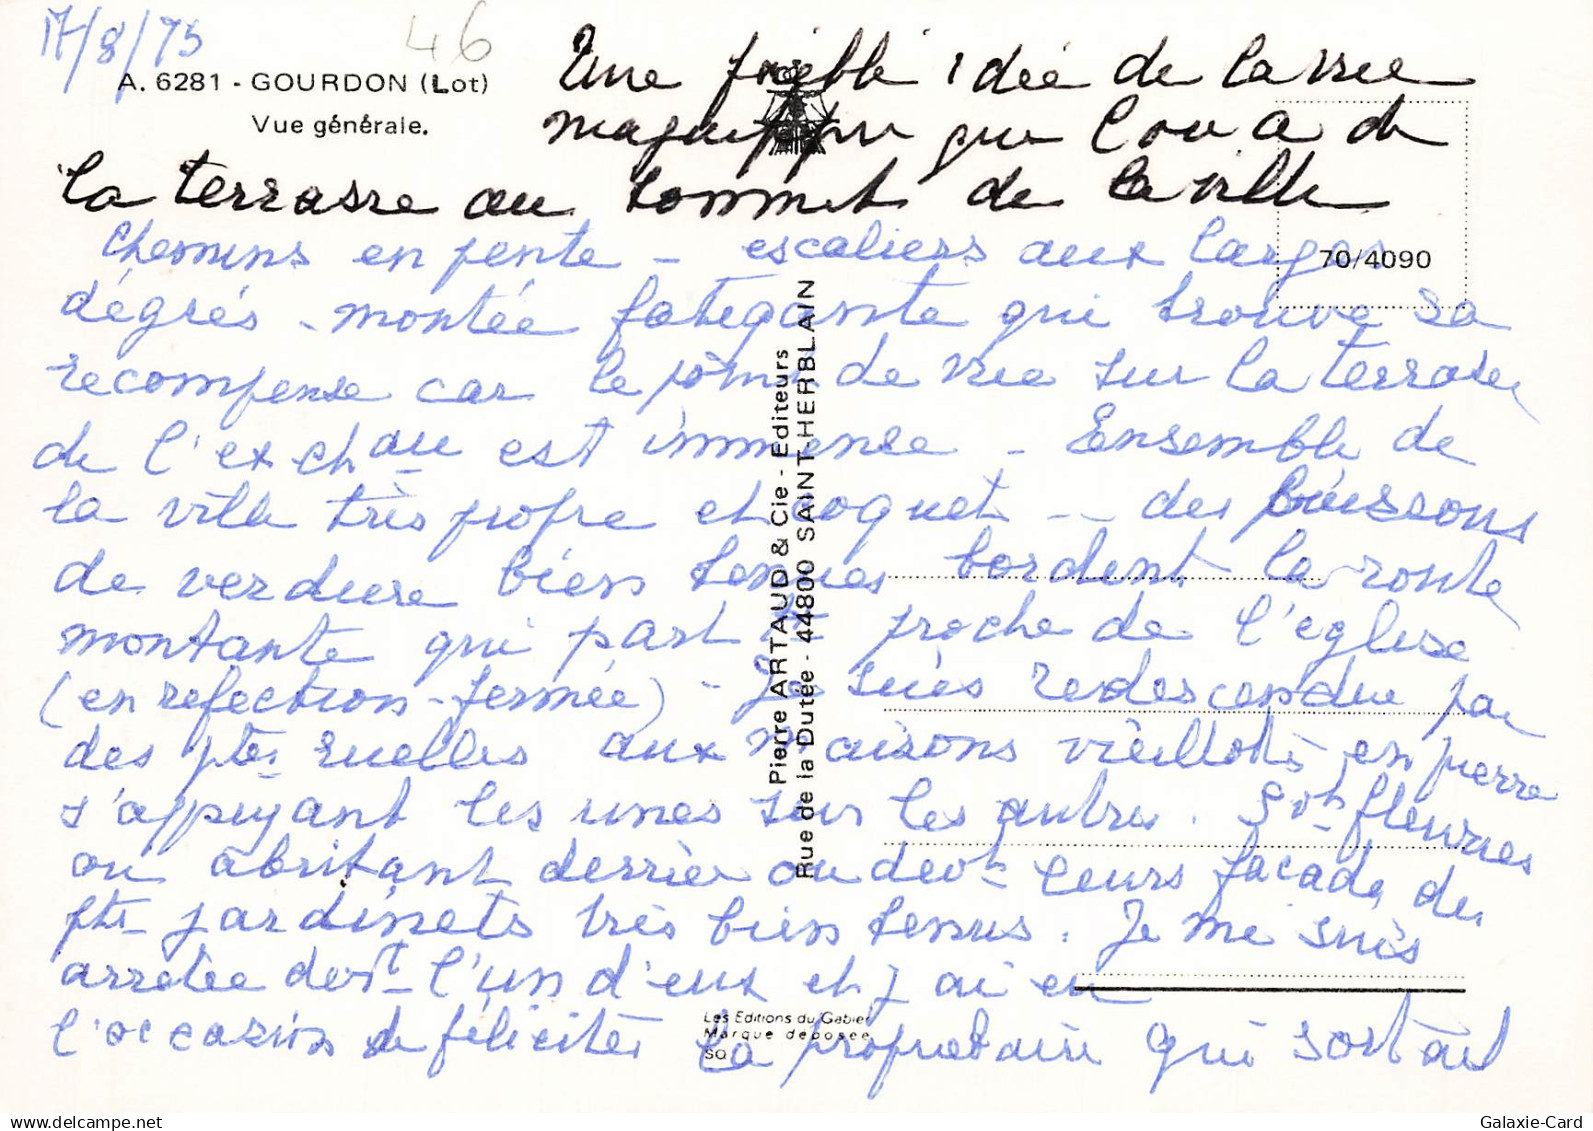 17/8/75
46
A. 6281 - GOURDON (Lot)
Vue générale.
Une faible idée de la vue
magnifique que l'on a de
la terrasse au sommet de la ville
Chemins en pente - escaliers aux larges
dégrés - montée fatigante qui trouve sa
recompense car le point de vue sur la terrasse
de l'ex chau est immense - Ensemble de
la ville très propre et coquet - des buissons
de verdure bien tenues bordent la route
montante qui part proche de l'église
(en refection - fermée) - Je suis redescendue par
des ptes ruelles aux maisons vieillotes en pierre
s'appuyant les unes sur les autres. Svt fleuries
ou abritant derrière ou devt leurs façades des
pts jardinets très bien tenus. Je me suis
arretée devt l'un d'eux et j'ai eu
l'occasion de féliciter la propriétaire qui sortait
70/4090
Pierre ARTAUD & Cie - Editeurs
Rue de la Dutée - 44800 SAINT HERBLAIN
Les Editions du Gabier
Marque déposée
SO
Galaxie-Card